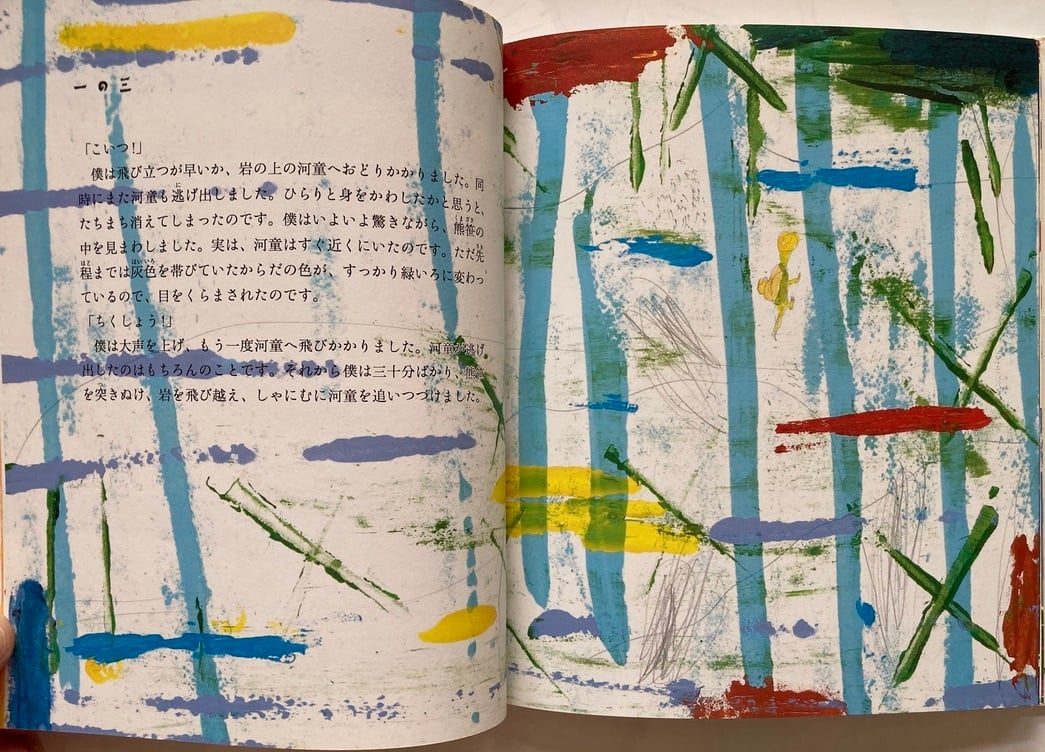 一の三
「こいつ!」
僕は飛び立つが早いか、岩の上の河童へおどりかかりました。同
時にまた河童も逃げ出しました。ひらりと身をかわしたかと思うと、
たちまち消えてしまったのです。僕はいよいよ驚きながら、熊笹の
中を見まわしました。実は、河童はすぐ近くにいたのです。ただ先
程までは灰色を帯びていたからだの色が、すっかり緑いろに変わっ
ているので、目をくらまされたのです。
「ちくしょう!」
僕は大声を上げ、もう一度河童へ飛びかかりました。河童が逃げ
出したのはもちろんのことです。それから僕は三十分ばかり、熊笹
を突きぬけ、岩を飛び越え、しゃにむに河童を追いつづけました。